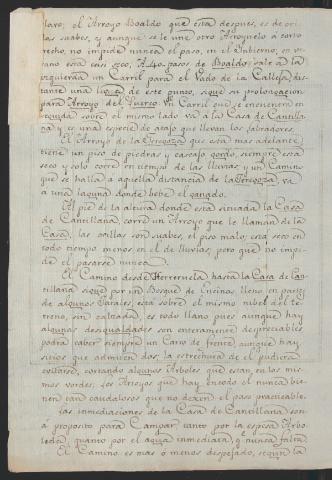 claro; el Arroyo Boaldo que está despues, es de ori-
llas suabes, y aunque se le une otro Arroyuelo á corto
trecho, no impide nunca el paso, en el Imbierno; en ve-
rano está casi seco, A 400 pasos de Boaldo sale á la
izquierda un Carril para el Vado de la Calleja, dis-
tante una legua de este punto, sigue su prolongacion
para Arroyo del Puerco. Un Carril que se encuentra en
seguida sobre el mismo lado va á la Casa de Cantilla-
na y es una especie de atajo que llevan los labradores.
El Arroyo de la Terezoza que está mas adelante
tiene un piso de piedras y cascajo gordo, siempre está
seco y solo corre en tiempo de las lluvias; un Camino
que se halla á aquella distancia de la Terezoza, va
á una laguna donde bebe el ganado.
Al pie de la altura donde está situada la Casa
de Cantillana, corre un Arroyo que le llaman de la
Casa, las orillas son suabes, el piso malo; está seco en
todo tiempo menos en el de lluvias; pero que no impi-
de el pasarse nunca.
El Camino desde Herreruela hasta la Casa de Can-
tillana sigue por un Bosque de Encinas lleno en partes
de algunos Jarales, está sobre el mismo nibel del te-
rreno, sin calzada, es todo llano pues aunque hay
algunas desigualdades son enteramente despreciables
podrá caber siempre un Carro de frente aunque hay
sitios que admiten dos: la estrechura de el pudiera
evitarse, cortando algunos Arboles que estan en los mis-
mos vordes; los Arroyos que hay en todo el nunca bie-
nen tan caudalosos que no dexen el paso practicable.
Las inmediaciones de la Casa de Cantillana son
á proposito para Campar tanto por la espesa Arbo-
leda, quanto por el agua inmediata, q. nunca falta.
El Camino es mas ó menos despejado, segun la